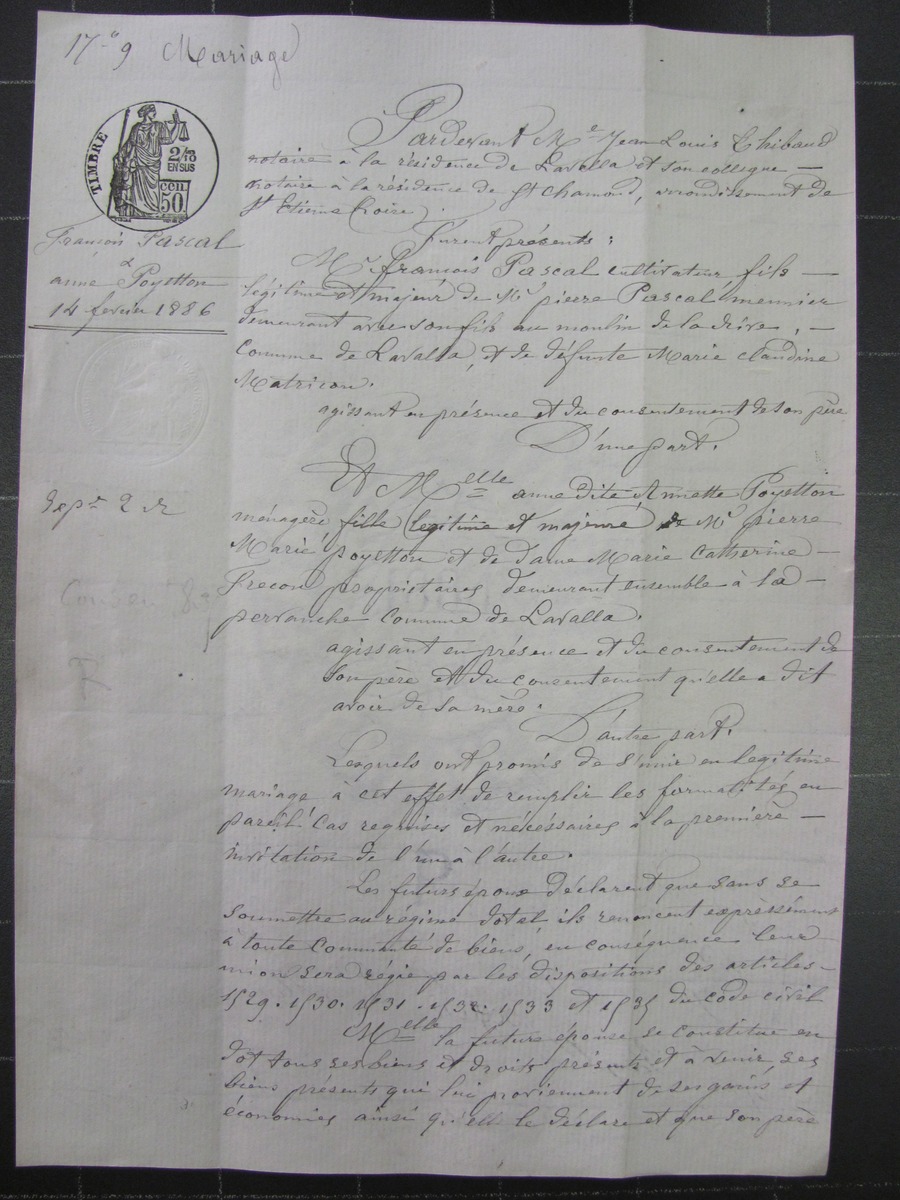 17 - 9 Mariage
TIMBRE
2/10
EN SUS
cen.
50
François Pascal
&
anne Poyetton
14 fevrier 1886
dept 2 R
Pardevant Me Jean Louis Thibaud
notaire à la résidence de Lavalla et son collègue —
notaire à la résidence de St Chamond, arrondissement de
St Etienne (Loire).
Furent présents :
Mr françois Pascal cultivateur, fils —
légitime et majeur de Mr pierre Pascal meunier
demeurant avec son fils au moulin de la rive, —
commune de Lavalla, et de défunte Marie claudine
Matricon.
agissant en présence et du consentement de son père
D'une part.
Et Melle anne dite Annette Poyetton
ménagère, fille légitime et majeure de Mr pierre
Marie poyetton et de dame Marie Catherine —
Frecon propriétaires, demeurant ensemble à la —
pervanche commune de Lavalla.
agissant en présence et du consentement de
son père et du consentement qu'elle a dit
avoir de sa mère.
D'autre part.
Lesquels ont promis de s'unir en legitime
mariage à cet effet de remplir les formalités en
pareil cas requises et nécessaires à la première —
invitation de l'un à l'autre.
Les futurs époux déclarent que sans se
soumettre au régime dotal ils renoncent expressément
à toute communté de biens, en conséquence leur
union sera régie par les dispositions des articles —
1529. 1530. 1531. 1532. 1533 et 1535 du code civil
Melle la future épouse se constitue en
dot tous ses biens et droits présents et à venir, ses
biens présents qui lui proviennent de ses gains et
économies ainsi qu'elle le déclare et que son père